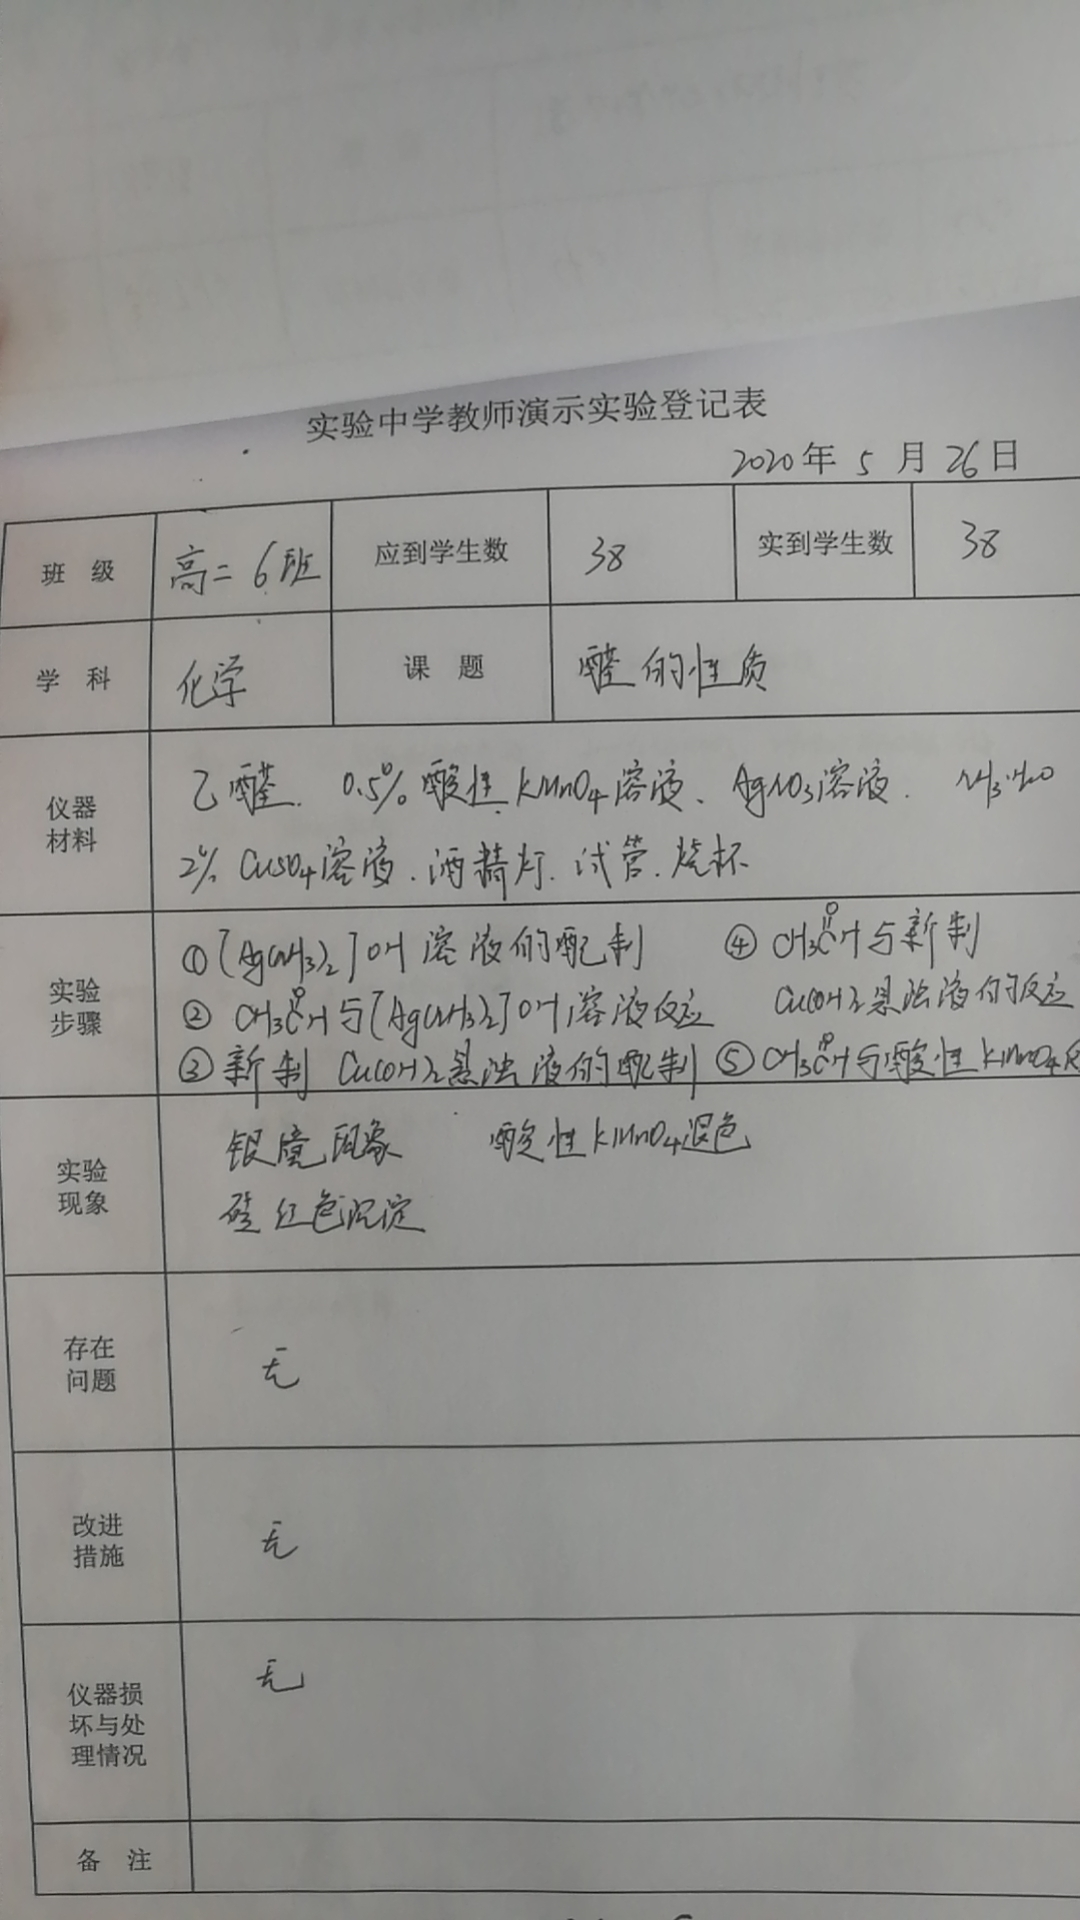 实验中学教师演示实验登记表
2020年 5 月 26日
班 级 高二 6班 应到学生数 38 实到学生数 38
学 科 化学 课 题 醛的性质
仪器
材料
乙醛. 0.5% 酸性KMnO4溶液、AgNO3溶液. NH3·H2O
2% CuSO4溶液.酒精灯.试管.烧杯
实验
步骤
①[Ag(NH3)2]OH溶液的配制
② CH3CHO与[Ag(NH3)2]OH溶液反应
③新制 Cu(OH)2悬浊液的配制
④ CH3CHO与新制
Cu(OH)2悬浊液的反应
⑤CH3CHO与酸性KMnO4反
实验
现象
银镜现象 酸性KMnO4退色
砖红色沉淀
存在
问题
无
改进
措施
无
仪器损
坏与处
理情况
无
备 注